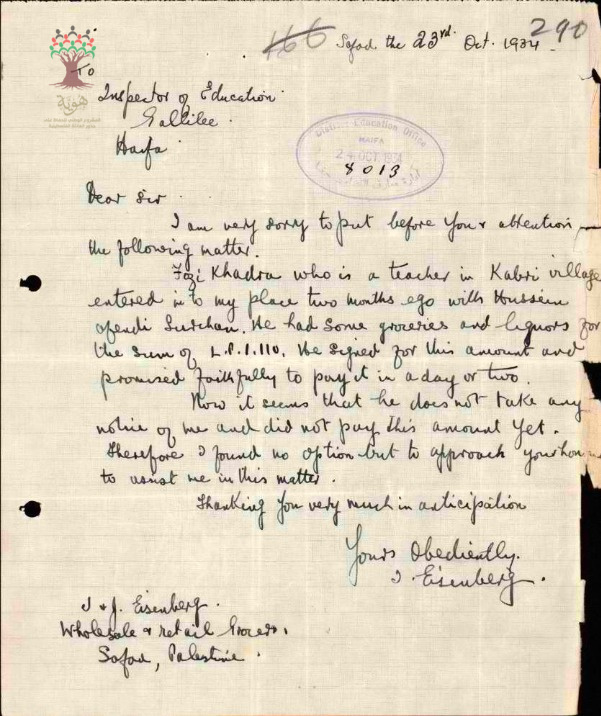 166
290
Safad the 23rd Oct. 1934
To
هوية
Inspector of Education
Gallilee.
Haifa.
District Education Office
HAIFA
24 OCT 1934
8013
Dear Sir
I am very sorry to put before your attention
the following matter.
Fozi Khadra who is a teacher in Kabri village
entered in to my place two months ego with Hussein
efendi . He had Some groceries and liquors for
the Sum of L.P.1.110. He Signed for this amount and
promised faithfully to pay it in a day or two.
Now it seems that he does not take any
notice of me and did not pay this amount yet.
Therefore I found no option but to approach your
to assist me in this matter.
Thanking you very much in anticipation
Yours Obediently.
I Eisenberg.
I & J. Eisenberg.
Wholesale & retail Grocers.
Safad, Palestine.